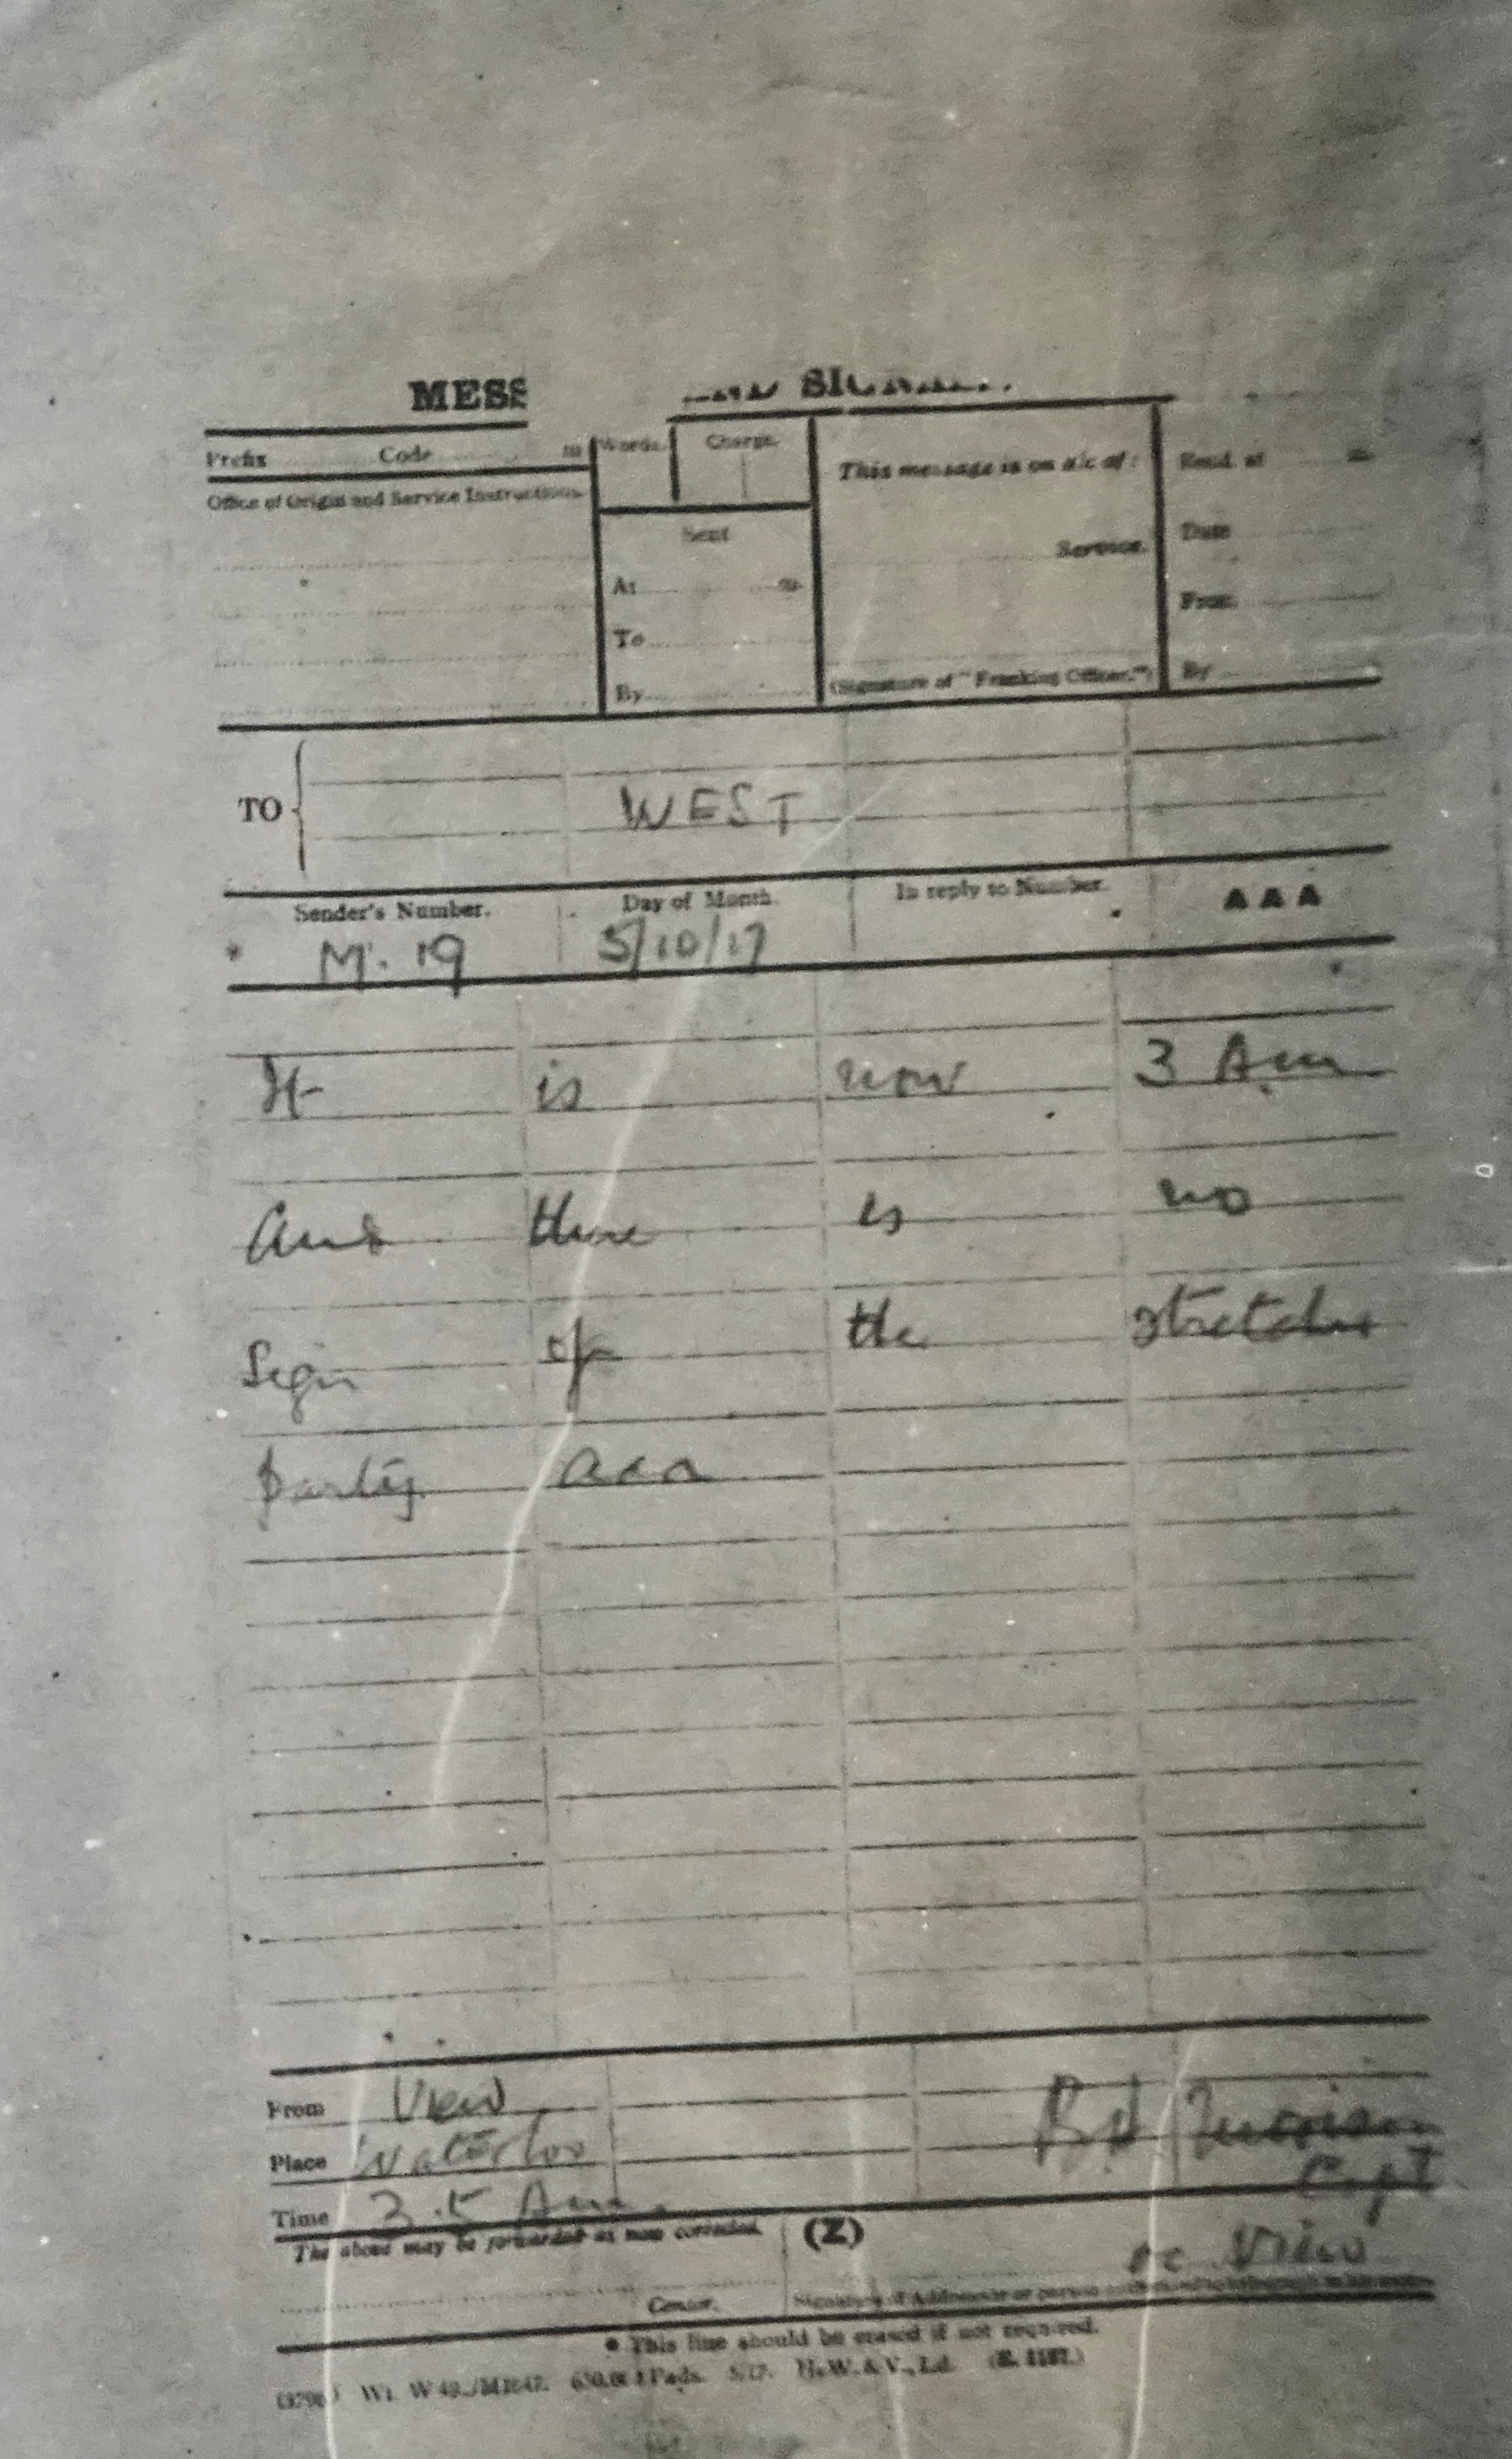 MESS AND SIGNALS.
Prefix Code m Words. Charge.
This message is on a/c of:
Recd. at m
Office of Origin and Service Instructions.
Sent
Service.
Date
At m
From
To
By
(Signature of "Franking Officer.")
By
TO WEST
Sender's Number. Day of Month. In reply to Number. AAA
* M. 19 5/10/17
It is now 3 Am
and there is no
sign of the stretcher
party aaa
From View
Place Waterloo
Time 3.5 Am.
Capt
The above may be forwarded as now corrected. (Z)
oc View
Censor. Signature of Addressor or person authorised to telegraph in his name.
* This line should be erased if not required.
Pads. 5/17. H.W.&V., Ld. (E. 1187.)